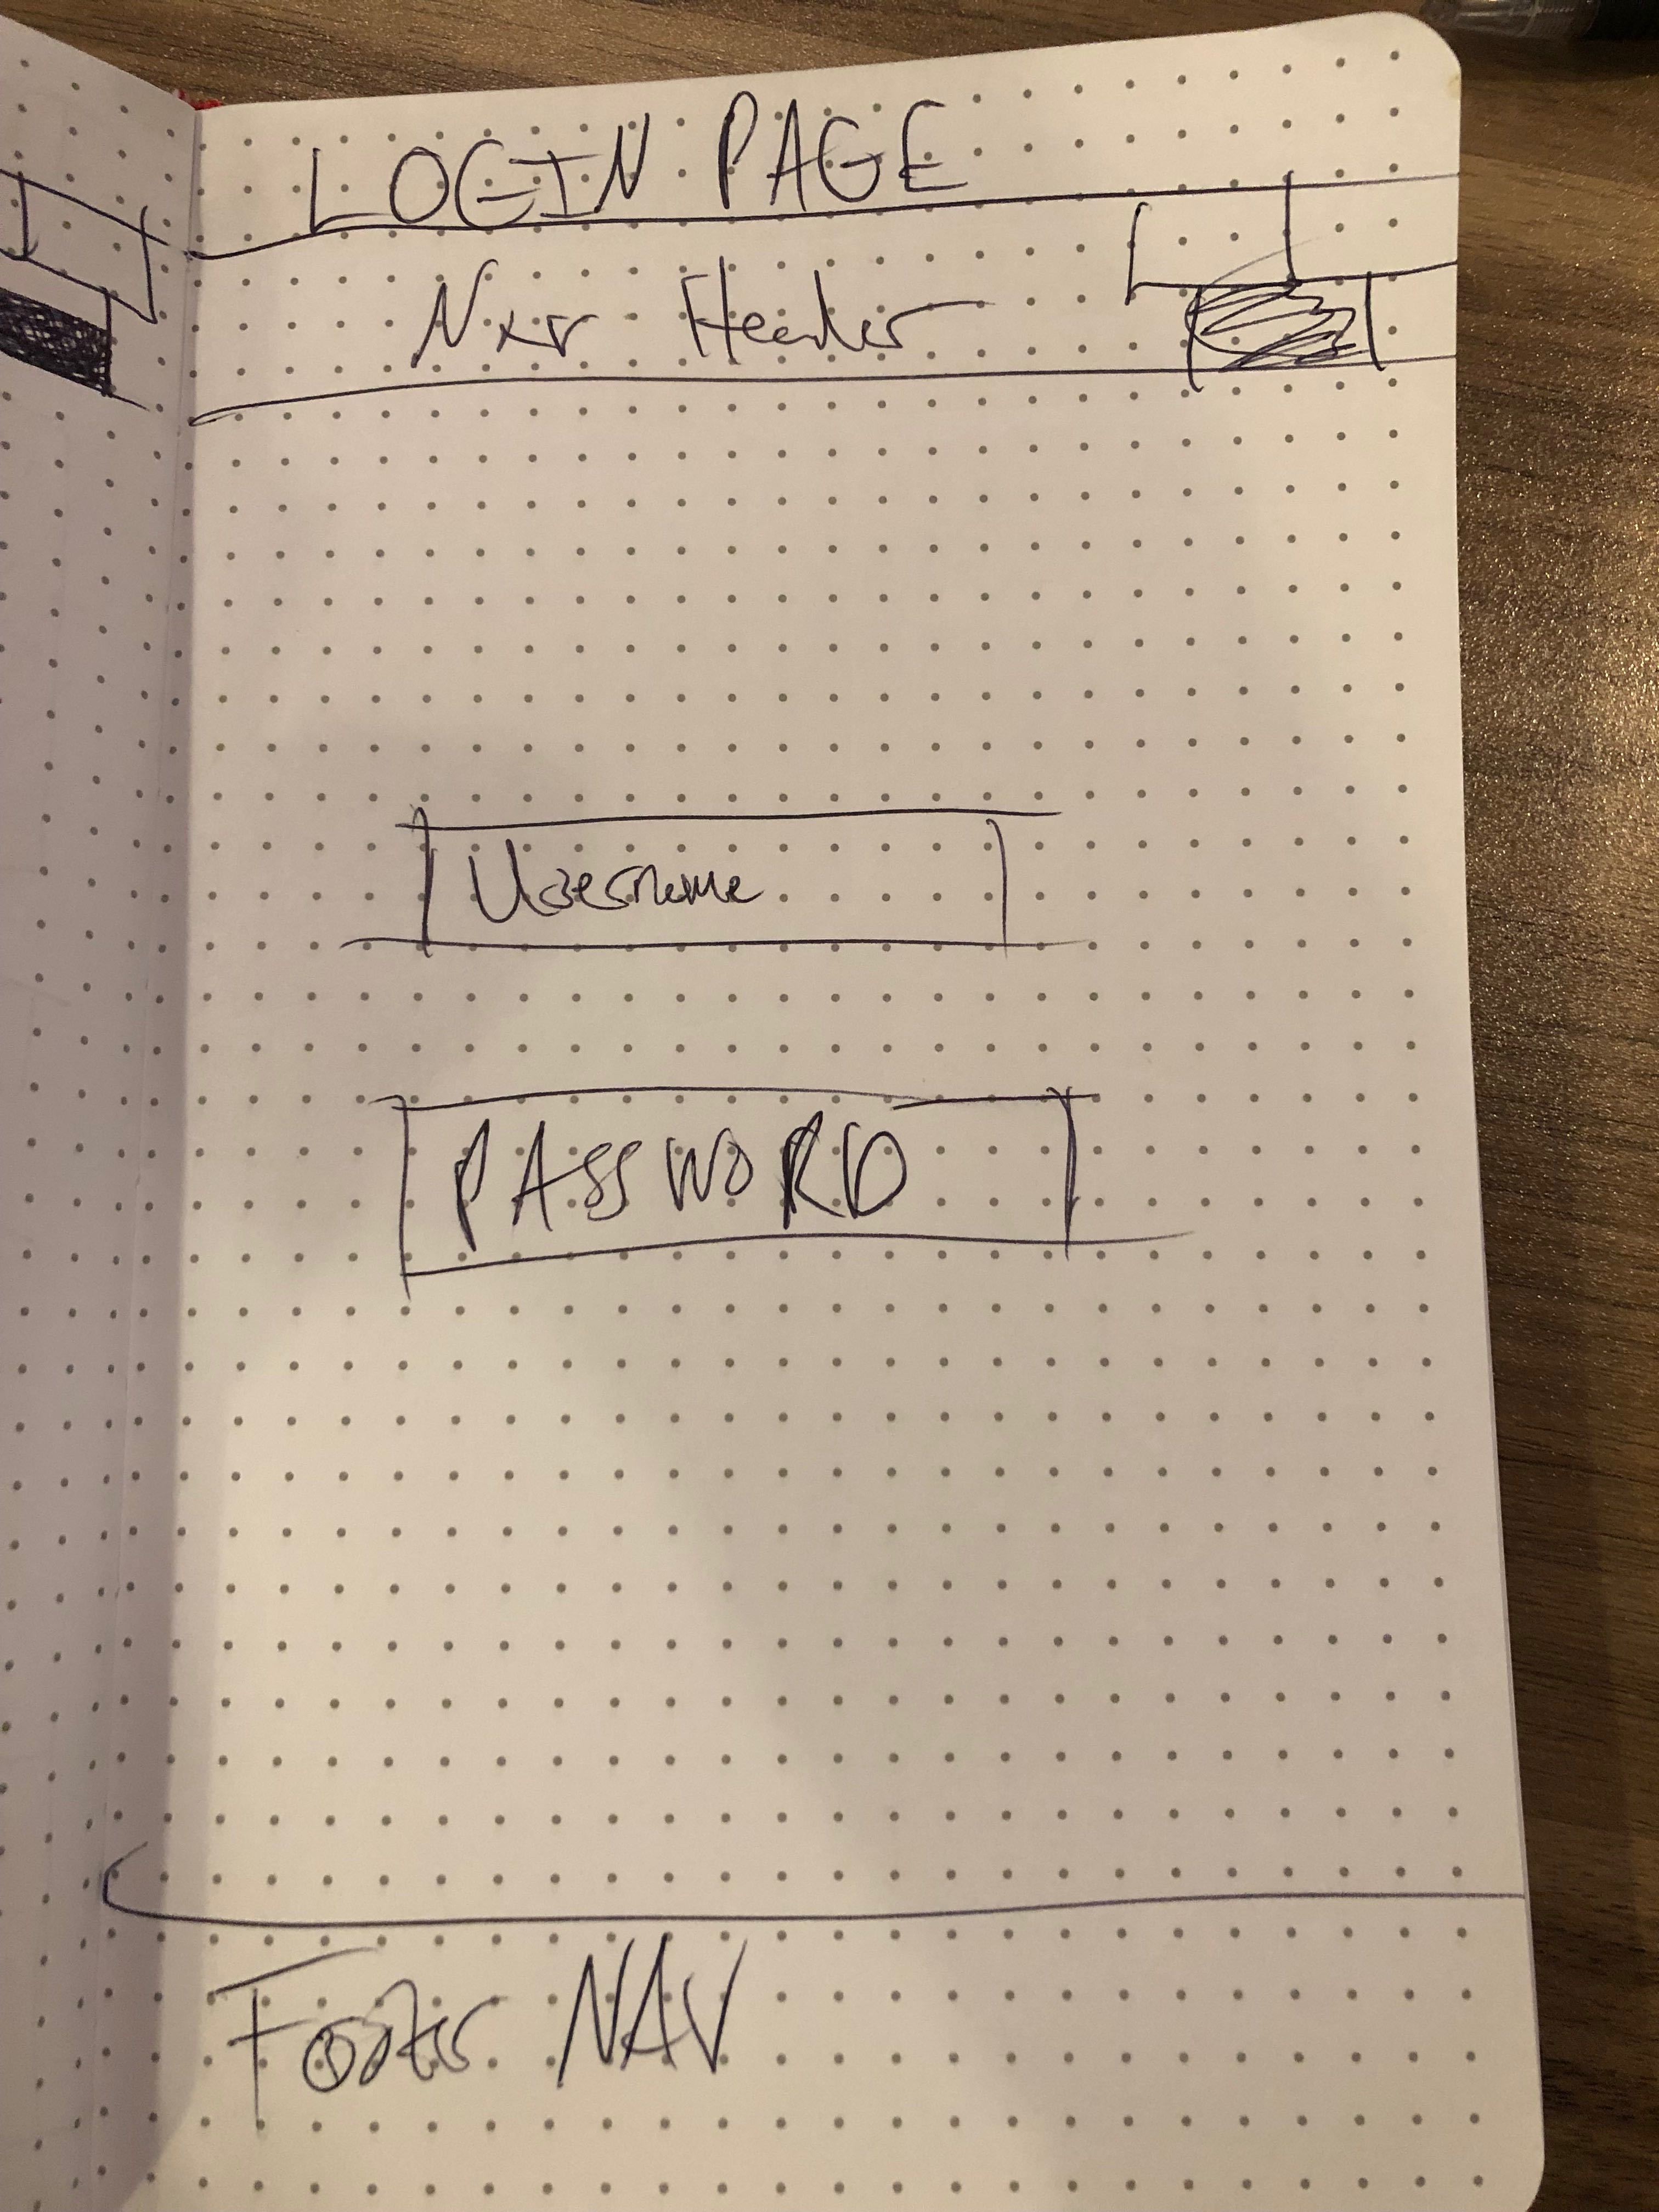 LOGIN PAGE
Nav Header
Username
PASSWORD
Footer NAV